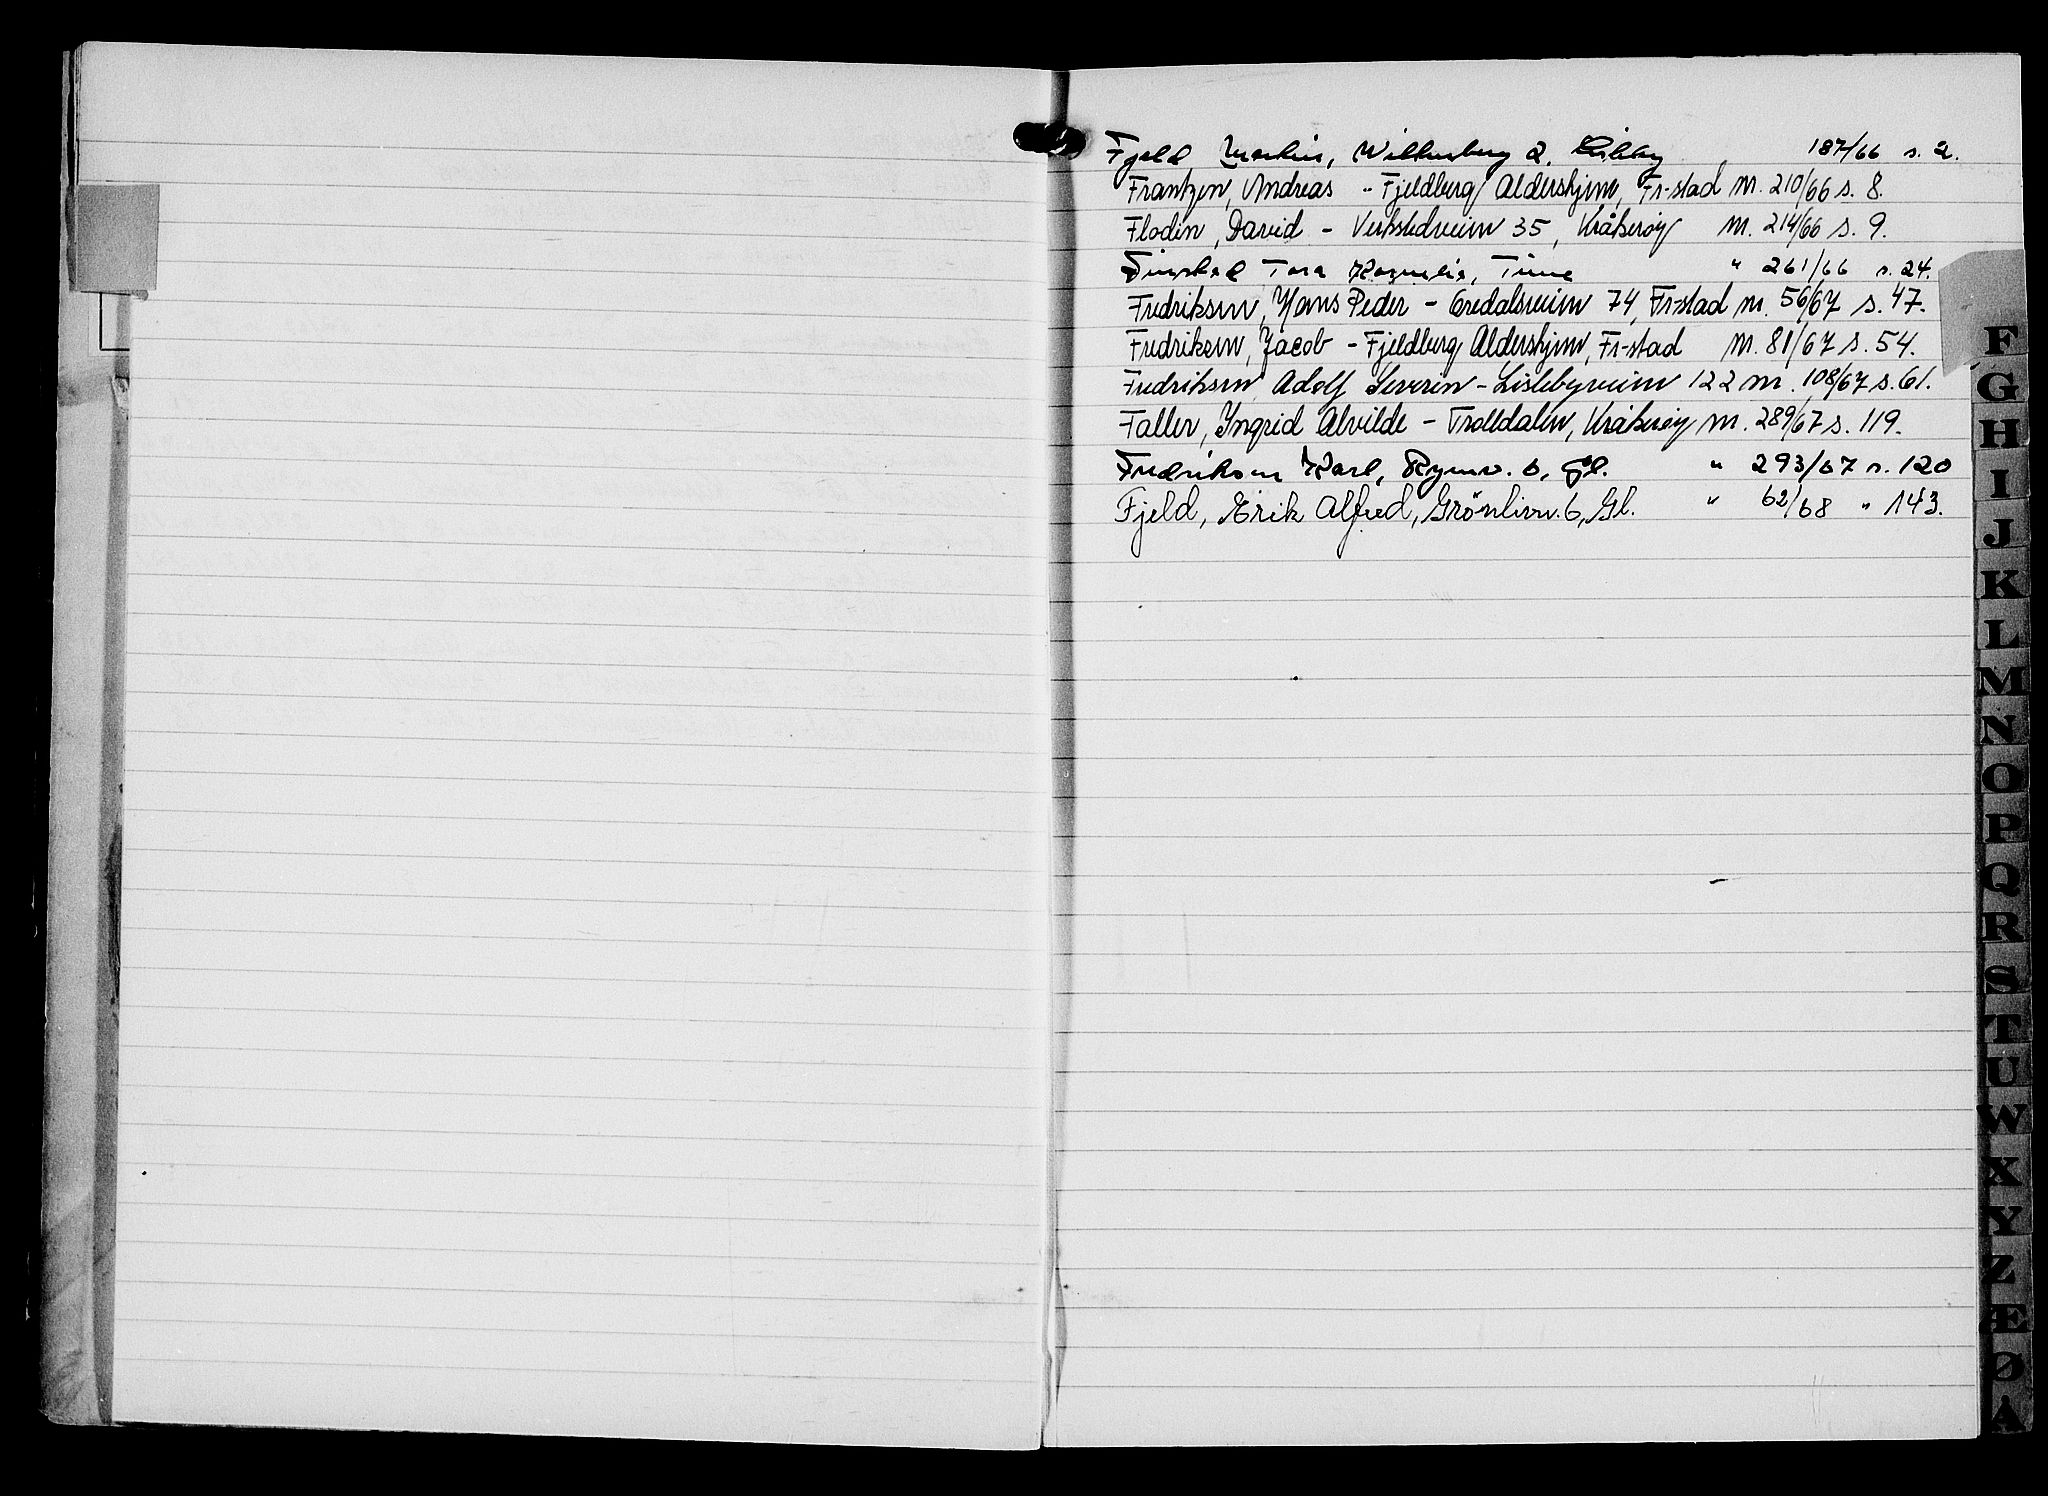 Fjeld Martin, Wittusberg 2, Lisleby 187/66 s. 2.
Frantzen, Andreas - Fjeldberg Aldershjem, Fr-stad nr. 210/66 s. 8.
Flodin, David - Verkstedveien 35, Kråkerøy nr. 214/66 s. 9.
Tora Kornelia, Tune " 261/66 s. 24.
Fredriksen, Hans Peder - Oredalsveien 74, Fr-stad nr. 56/67 s. 47.
Fredriksen, Jacob - Fjeldberg Aldershjem, Fr-stad nr. 81/67 s. 54.
Fredriksen Adolf Severin - Lislebyveien 122 nr. 108/67 s. 61.
Faller, Yngrid Alvilde - Trolldalen, Kråkerøy nr. 289/67 s. 119.
Fredriksen Karl, Rymv. 6, Gl. " 293/67 s. 120
Fjeld, Erik Alfred, Grönliv. 6, Gl. " 62/68 " 143.
F
G
H
I
J
K
L
M
N
O
P
Q
R
S
T
U
W
X
Y
Z
Æ
Ø
Å